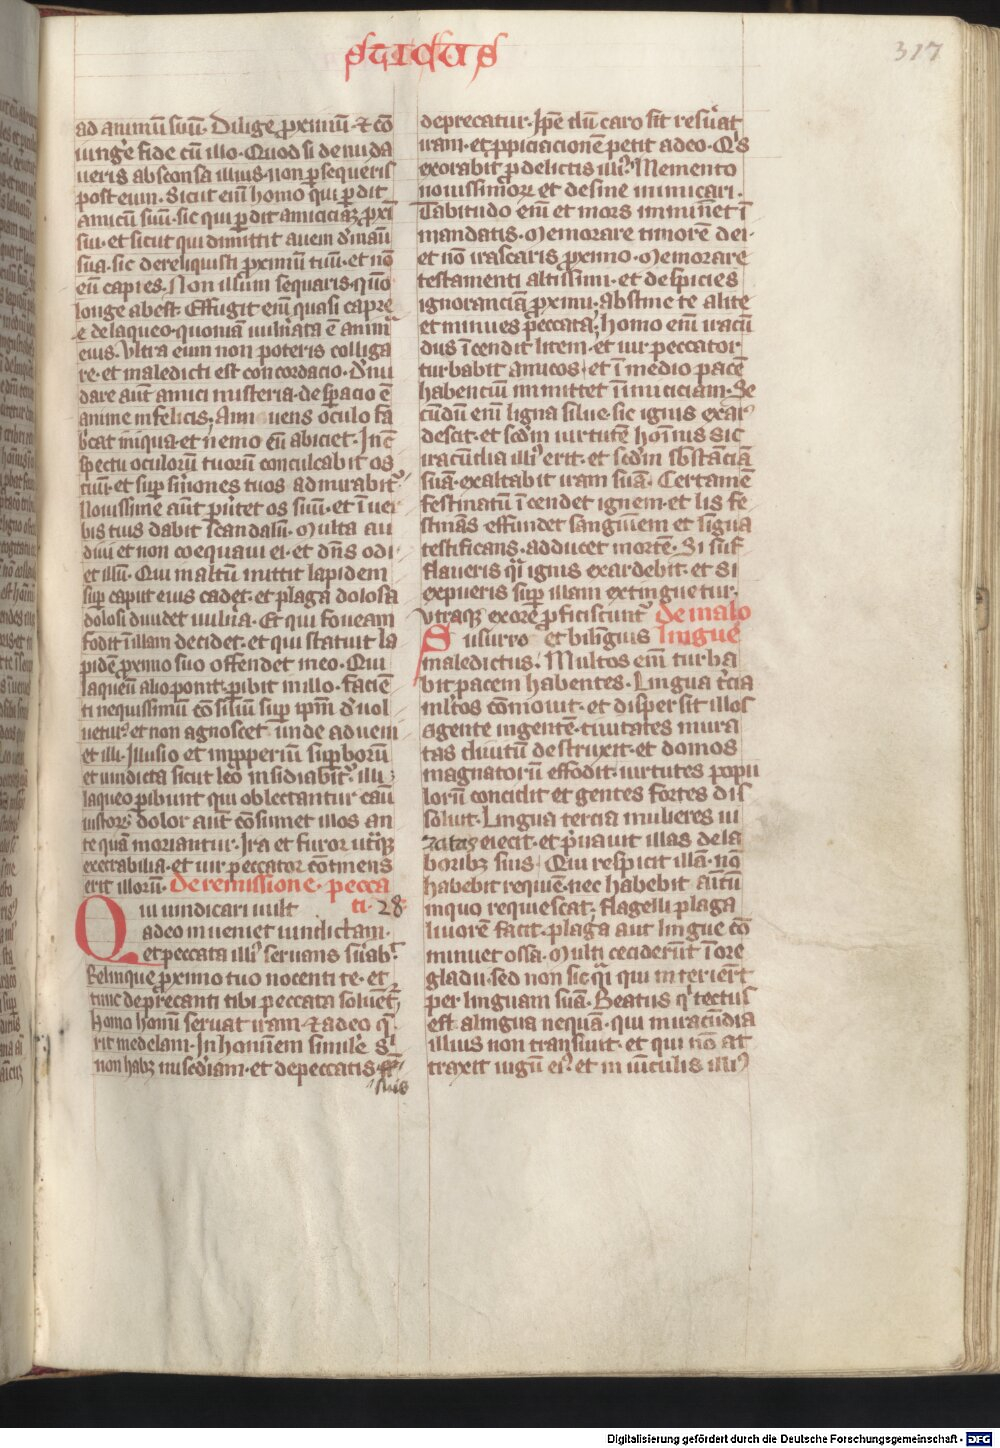 sticus
317
ad animū suū. Dilige ꝓximū. ⁊ cō
iunge fide cū illo. Quod si denuda
ueris absconsa illius. non ꝑsequeris
post eum. Sicut enī homo qui ꝑdit
amicū suū. sic qui ꝑdit amiciciā ꝓxi
sui. et sicut qui dimittit auem d̕ manu
sua. sic dereliquisti ꝓximū tuū. et nō
eū capies. Non illum sequaris. qm̄
longe abest. Effugit enī quasi capre
e de laqueo. quoniā uulnata ē anima
eius. Ultra eum non poteris colliga
re. et maledicti est concordacio. D̕nu
dare aut̄ amici misteria. desꝑacio ē
anime infelicis. Annuens oculo fa
bricat iniqua. et nemo eū abiciet. In cō
spectu oculorū tuorū conculcabit os
tuū. et suꝑ sermones tuos admirabit᷑.
Nouissime aut̄ ꝑuertet os suū. et ī uer
bis tuis dabit scandalū. Multa au
diui et non coequaui ei. et dn̄s odi
et illū. Qui in altū mittit lapidem
suꝑ caput eius cadet. et plaga dolosa
dolosi diuidet uulna. Et qui foueam
fodit ī illam decidet. et qui statuit la
pidē ꝓximo suo offendet in eo. Qui
laqueū alio ponit. ꝑibit in illo. facien
ti nequissimū cōsiliū suꝑ ipm̄ d̕uol
uetur. et non agnoscet unde adueni
et illi. Illusio et imꝓperiū suꝑborū
et uindicta sicut leo insidiabit᷑ illi.
laqueo ꝑibunt qui oblectantur casu
iustorū. dolor aut̄ cōsumet illos an
te quā moriantur. Ira et furor utraqꝫ
execrabilia. et uir peccator cōtinens
erit illorū. De remissione pecca
Qui uindicari uult ti. 28
a deo inueniet uindictam.
et peccata illiꝰ seruans seruab᷑
Relinque ꝓximo tuo nocenti te. et
tunc deprecanti tibi peccata soluent᷑
homo homini seruat iram. ⁊ a deo que
rit medelam. In hominem simile si
non habꝫ misc̄diam. et de peccatis
suis
deprecatur. Ipe dū caro sit reseruat
iram. et ꝓpiciacionē petit a deo. Qis
exorabit ꝓ delictis illiꝰ. Memento
nouissimorū et desine inimicari.
Tabitudo enī et mors imminet ī
mandatis. Memorare timorē dei.
et nō irascaris ꝓximo. Memorare
testamenti altissimi. et despicies
ignoranciā ꝓximi. abstine te a lite
et minues peccata. homo enī iracū
dus īcendit litem. et uir peccator
turbabit amicos. et ī medio pacē
habenciū immittet īimiciciam. Se
cūdum enī ligna silue. sic ignis exar
descit. et scd̄m uirtutē hominis sic
iracūdia illiꝰ erit. et scd̄m sbstanciā
suā. exaltabit iram suā. Certamē
festinatū īcendet ignem. et lis fe
stinās effundet sanguīem et līgua
testificans. adducet mortē. Si suf
flaueris quasi ignis exardebit. et si
expueris suꝑ illam extinguetur.
utraqꝫ ex ore ꝓficiscunt᷑ De malo
Susurro et bilīguis lingue
maledictus. Multos enī turba
bit pacem habentes. Lingua t̕cia
ml̕tos cōmouit. et dispersit illos
a gente in gentē. ciuitates mura
tas diuitū destruxit. et domos
magnatorū effodit. uirtutes popu
lorū concidit et gentes fortes dis
soluit. Lingua tercia mulieres ui
ratas eiecit. et ꝑuauit illas de la
boribꝫ suis. Qui respicit illā. nō
habebit requiē. nec habebit amicū
in quo requiescat. flagelli plaga
liuorē facit. plaga aut lingue cō
minuet ossa. Multi ceciderūt ī ore
gladii. sed non sic quasi qui interierūt
per linguam suā. Beatus qi tectus
est a lingua nequā. qui in iracūdia
illius non transiuit. et qui nō at
traxit iugū eiꝰ. et in uīculis illiꝰ
Digitalisierung gefördert durch die Deutsche Forschungsgemeinschaft - DFG